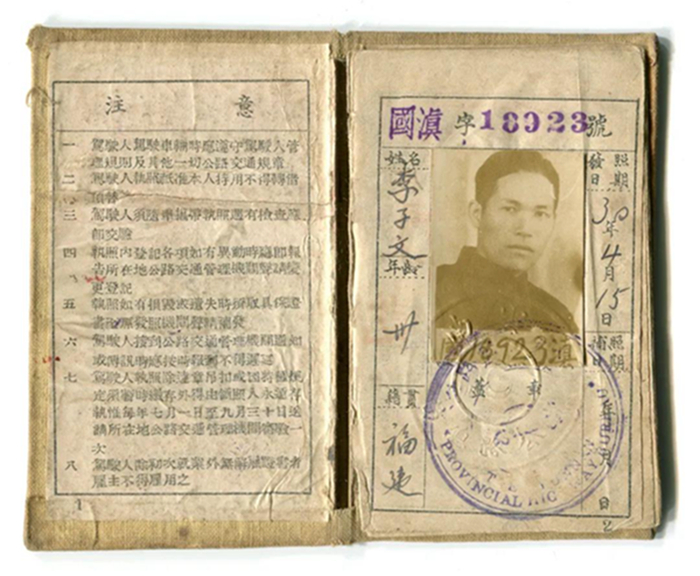 注意
一 駕駛人駕駛車輛時應遵守駕駛人管
理規則及其他一切公路交通規章
二 駕駛人執照祇准本人持用不得轉借
頂替
三 駕駛人須隨車攜帶執照遇有檢查應
即交驗
四 執照內登記各項如有異動時應即報
告所在地公路交通管理機關聲請變
更登記
五 執照如有損毀或遺失時
六 駕駛人接到公路交通管理機關通知
或傳訊時應按時報到不得遲延
七 駕駛人執照除違章吊扣或
執照每年七月一日至九月三十日送
請所在地公路交通管理機關審驗一
次
八 駕駛人除初次
雇主不得雇用之
1
國滇字18923號
姓名
李子文
年齡
卅
籍貫
福建
照期
發日
30年4月15日
照期
補日
年月日
18923滇
PROVINCIAL HIGHWAY BUREAU
2